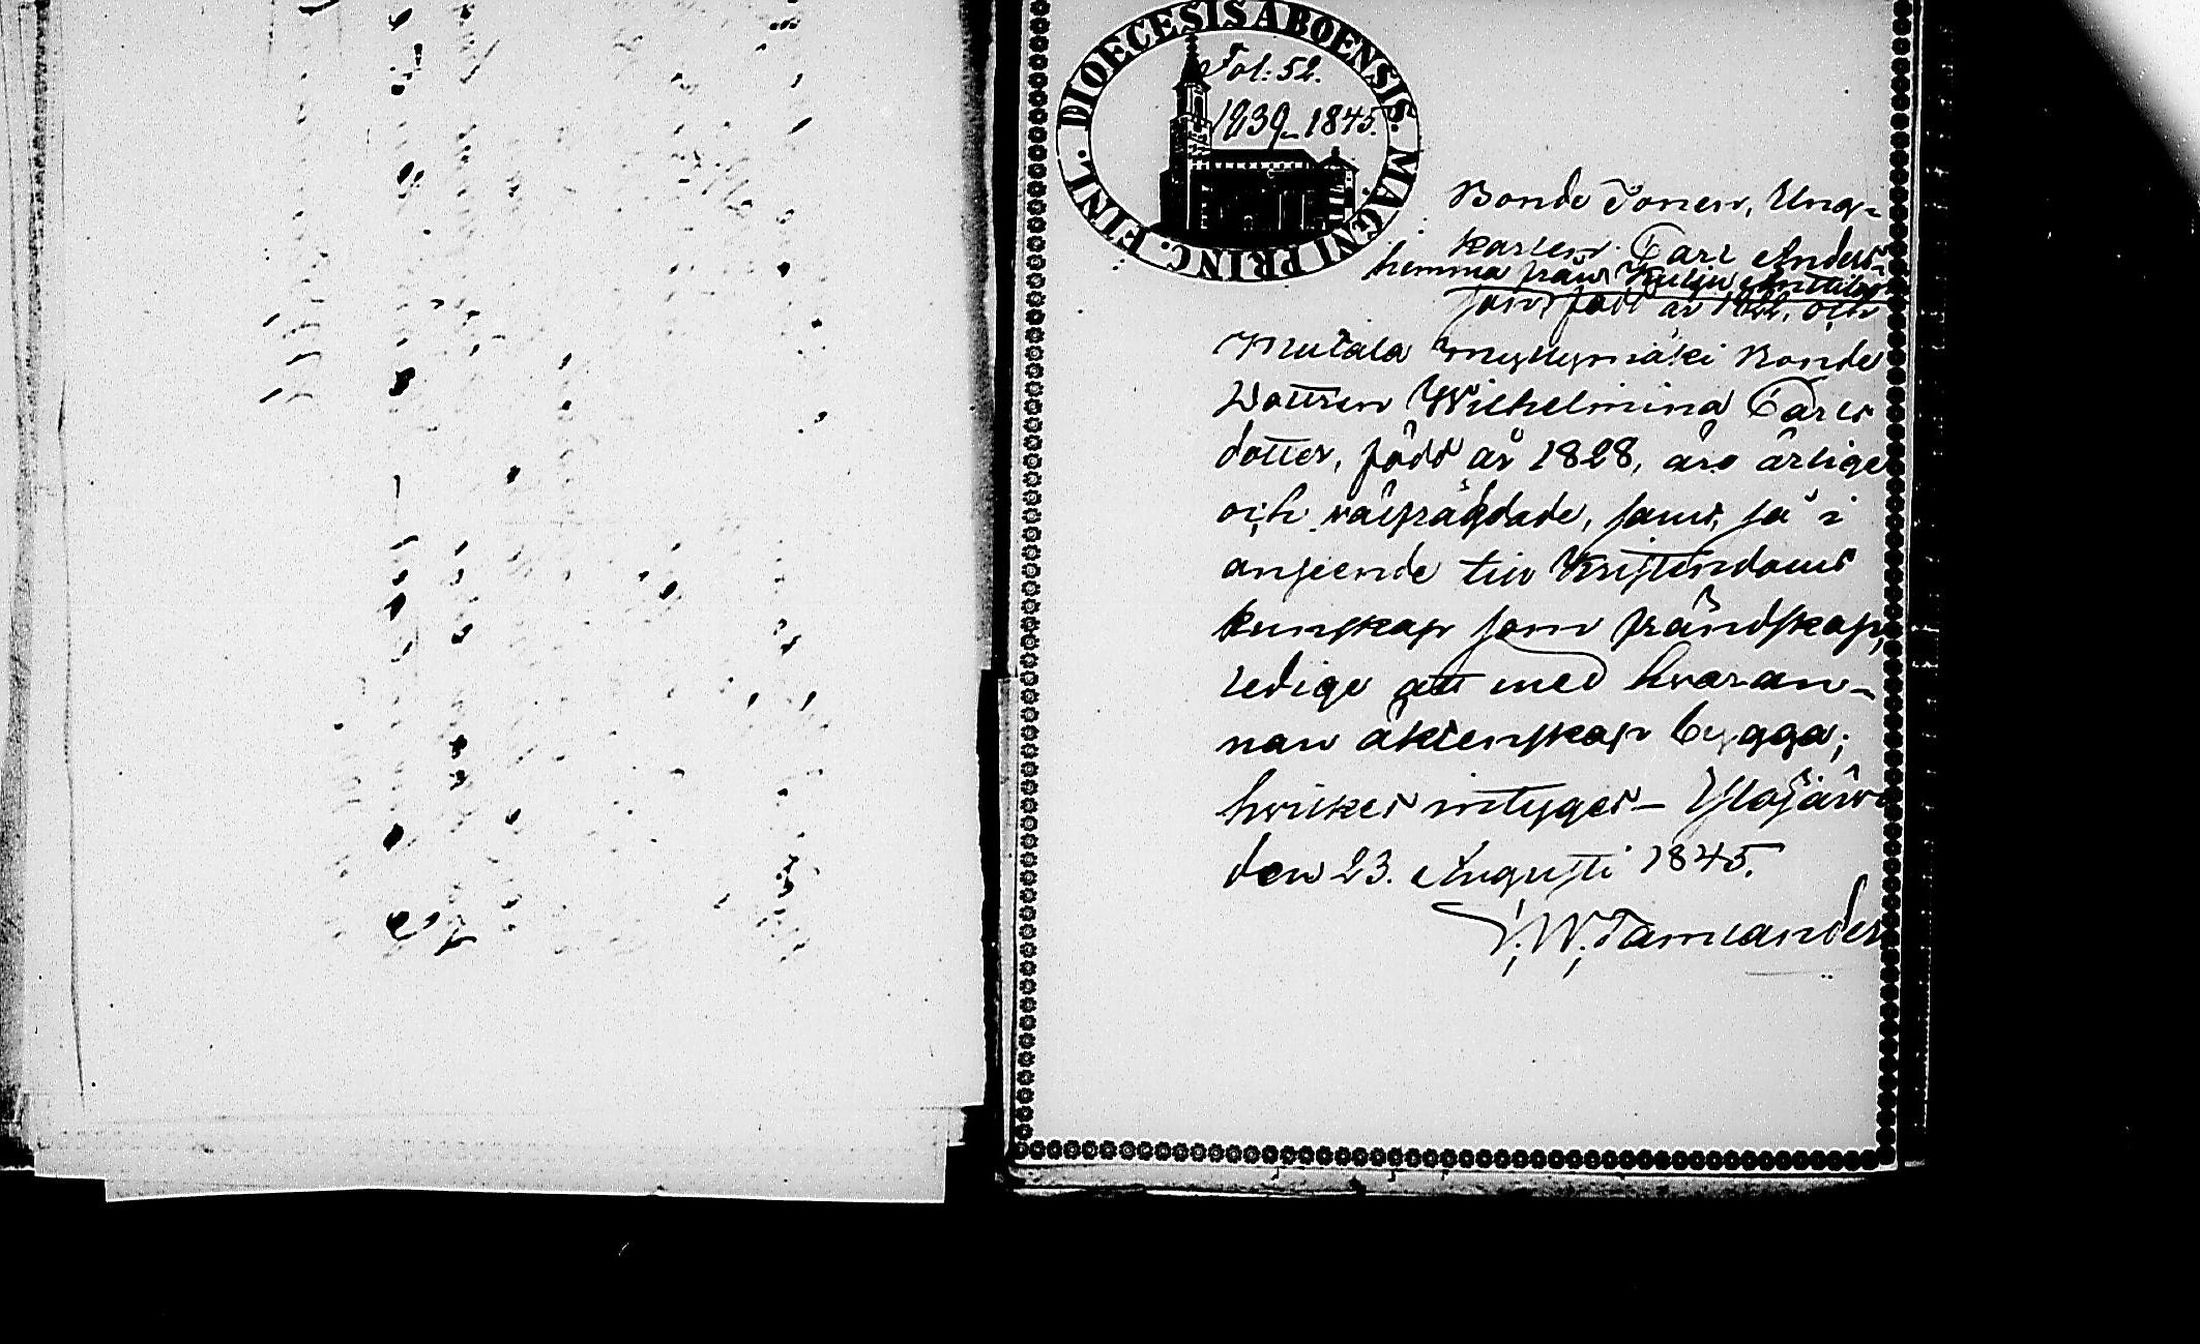 DIOECESIS ABOENSIS. MAGNI PRINC. FINL.
Fol: 52.
1839-1845.
Bonde Sonen, Ung-
karlen Carl Anders-
hemma från Kulju Anttila
son född år 1822, och
Mutala Myllymäki Bonde
Dottren Wilhelmina Carls
dotter, född år 1828, äro ärlige
och välfrägdade, samt, så i
anseende till Kristendoms
kunskap som frändskap,
ledige att med hvaran-
nan äktenskap bygga;
hvilket intygas- Ylöjärvi
den 23. Augusti 1845.
F. W. Tamlander